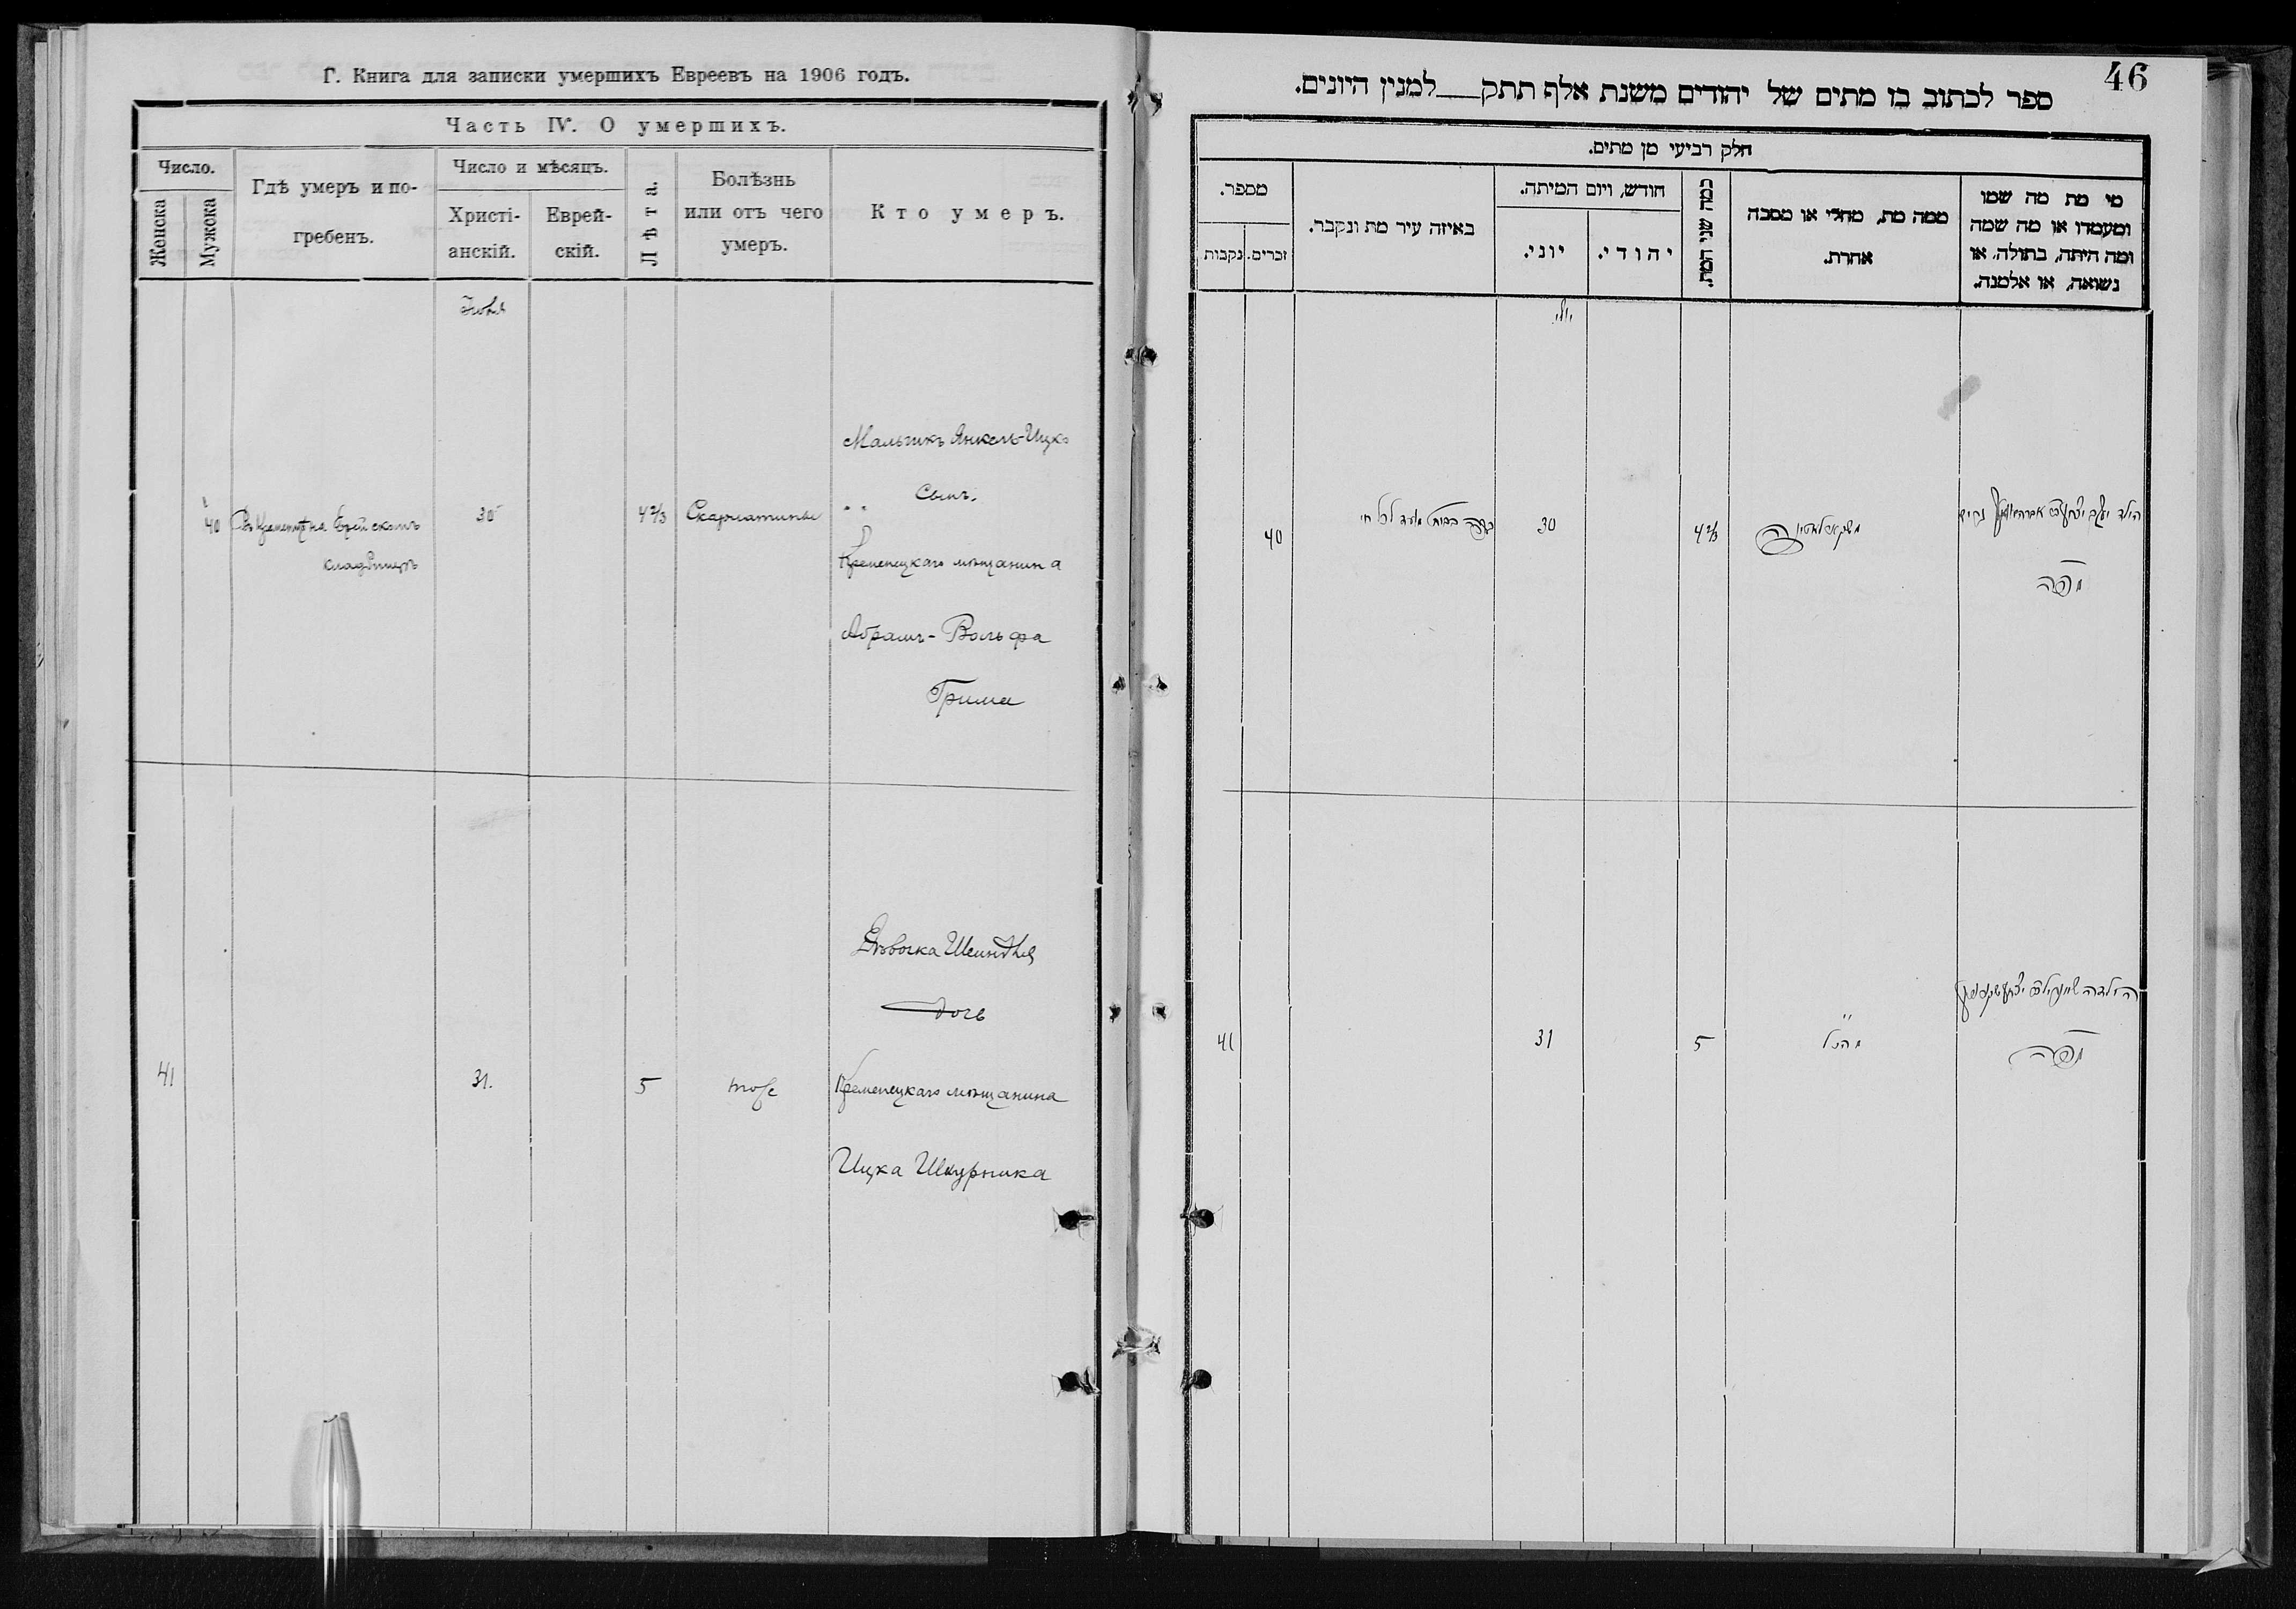 Г. Книга для записки умершихъ Евреевъ на 1906 годъ.
Часть IV. О умершихъ.
Число.
Женска
Мужеска
Гдѣ умеръ и по-
гребенъ.
Число и мѣсяцъ.
Христі-
анскій.
Еврей-
скій.
Лѣта.
Болѣзнь
или отъ чего
умеръ.
Кто умеръ.
Іюля
40
на
кладбищѣ
30
4 2/3
Скарлатины
Мальчикъ Янкель-Ицко
Сынъ
Кременецкаго мѣщанина
Абрамъ-Вольфа
Грима
41
31.
5
тоже
Дѣвочка Шейндля
Дочь
Кременецкаго мѣщанина
Ицка Шкурника
46
ספר לכתוב בו מתים של יהודים משנת אלף תתק למנין היונים.
חלק רביעי מן מתים.
מספר.
נקבות
זכרים.
באיזה עיר מת ונקבר.
חודש, ויום המיתה.
יוני.
יהודי.
כמה שני המת.
ממה מת, מחלי או מסבה
אחרת.
מי מת מה שמו
ומעמדו או מה שמה
ומה היתה, בתולה, או
נשואה, או אלמנה.
יולי
40
לכל חי
30
4 2/3
הילד
41
31
5
הילדה